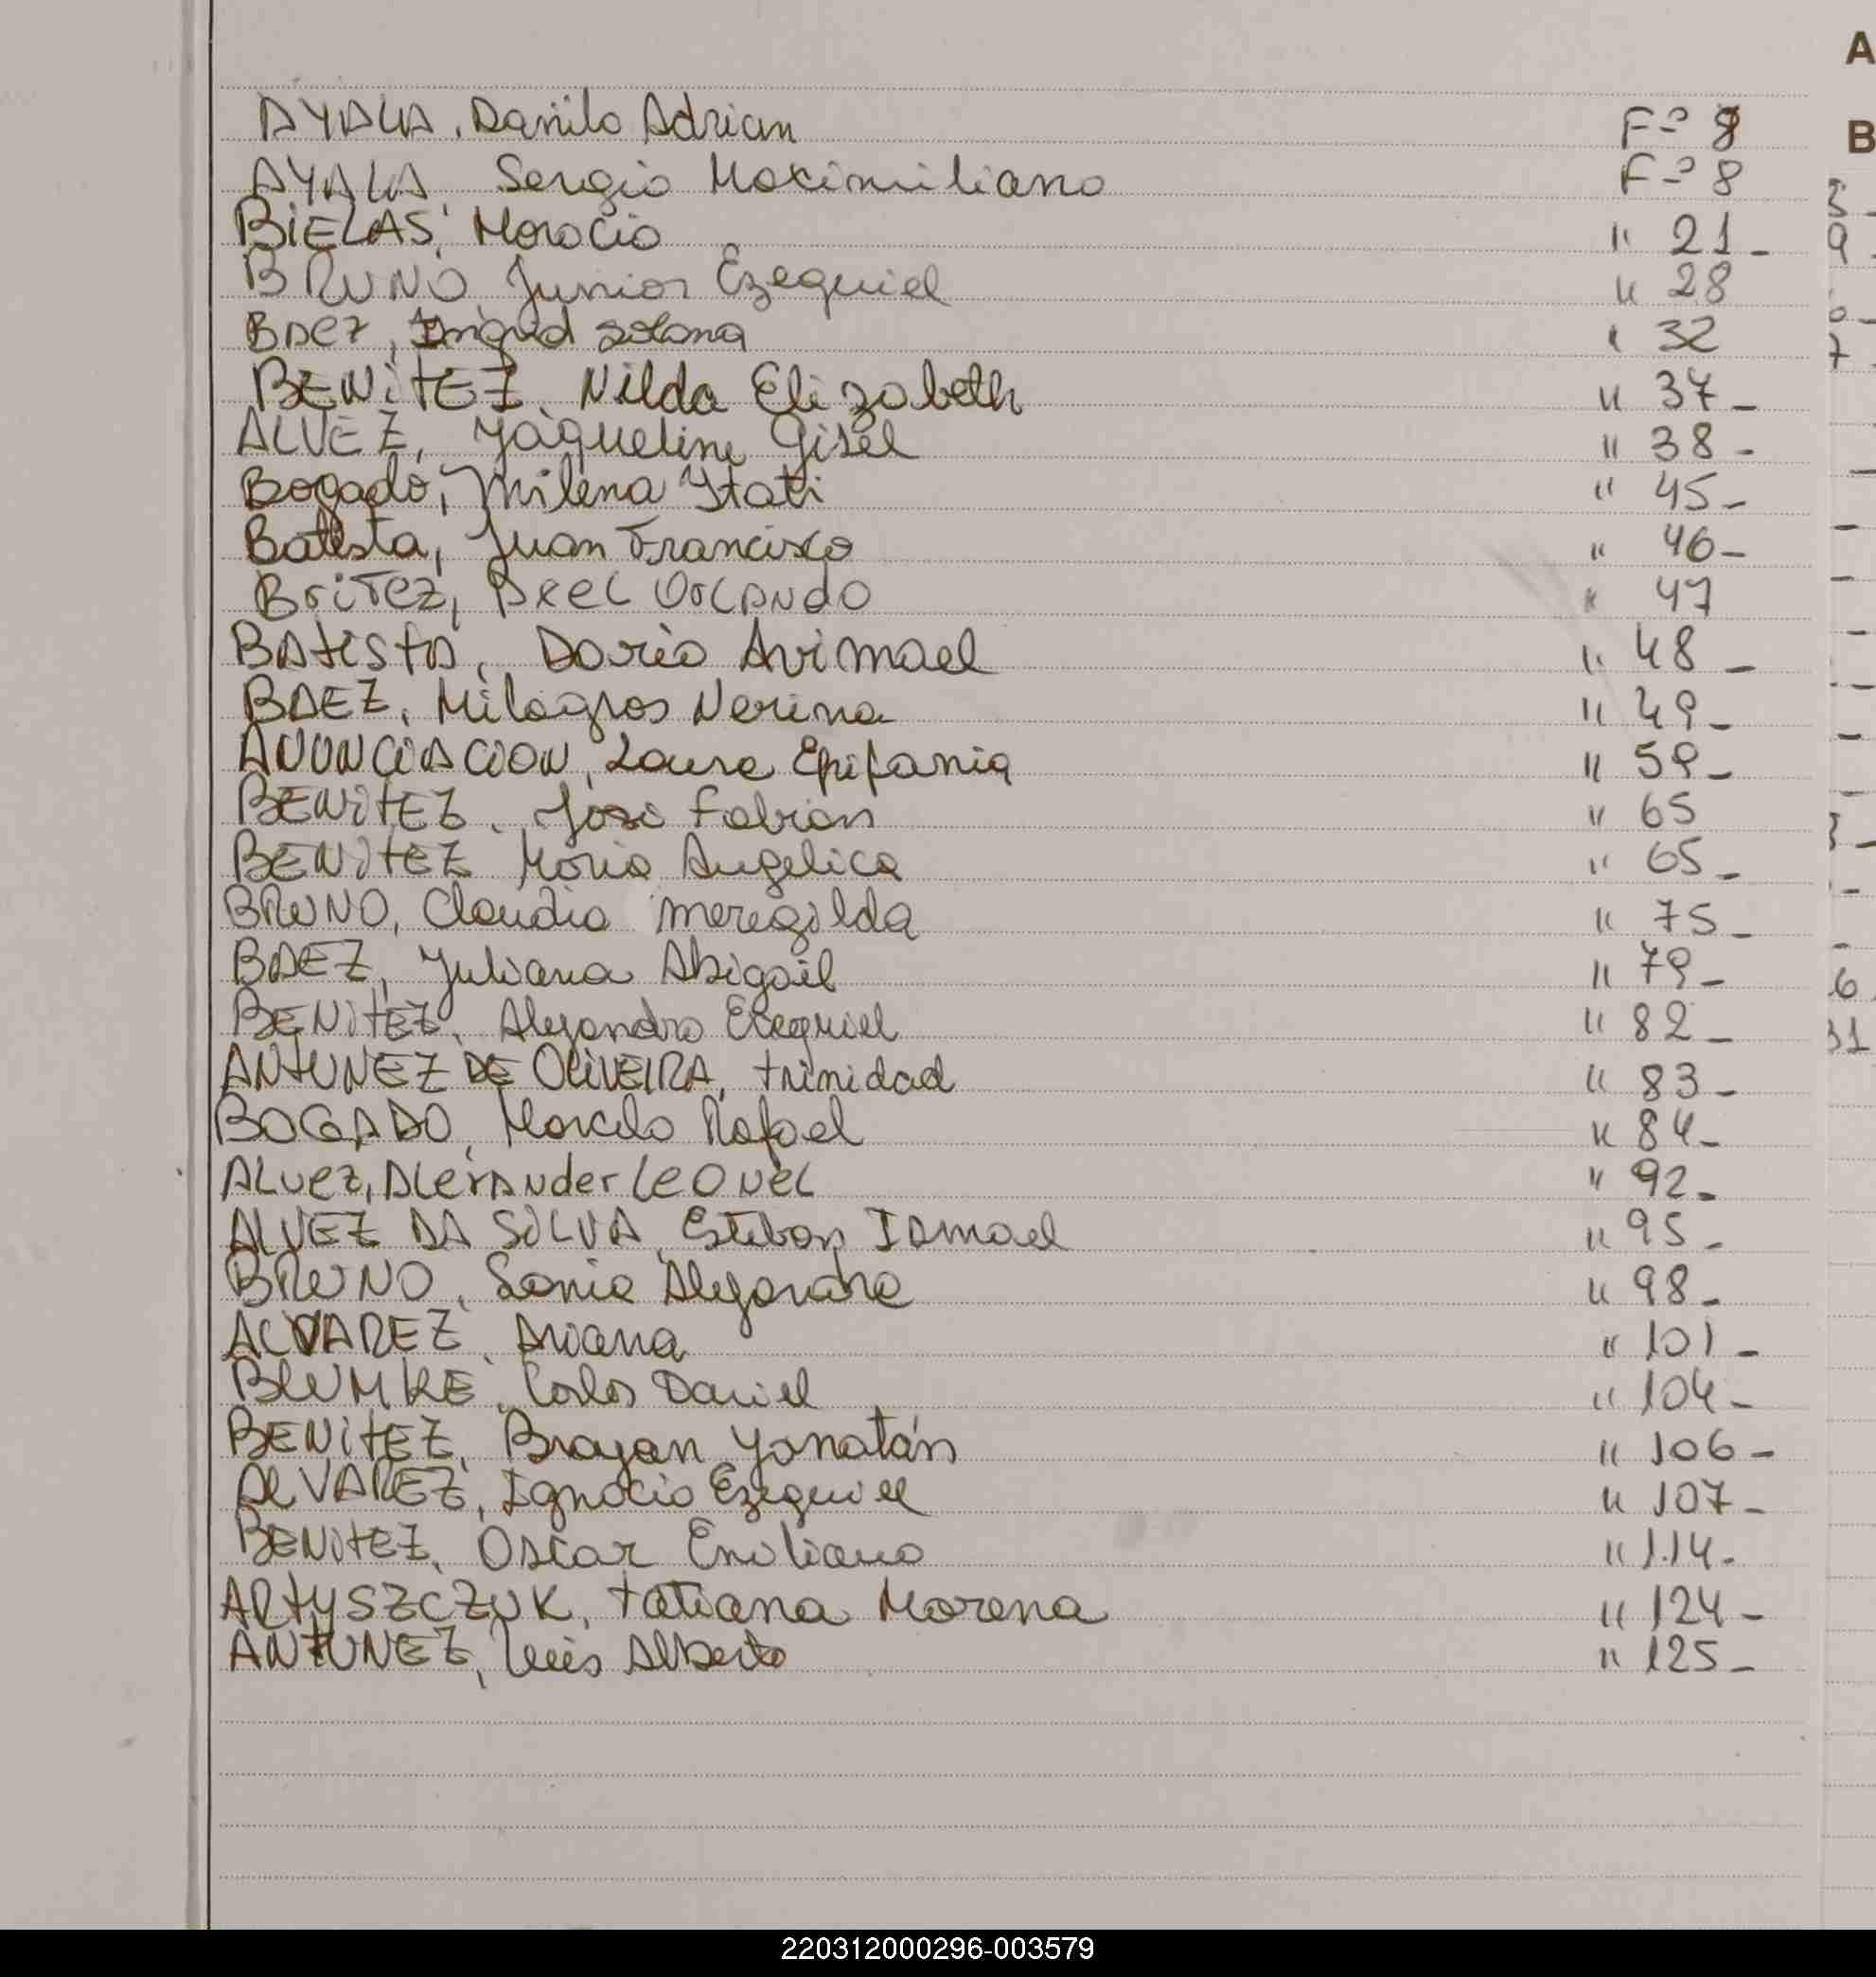 A
B
AYALA, Danilo Adrian F-° 8
AYALA, Sergio Maximiliano F-° 8
BIELAS, Horacio " 21-
BRUNO, Junior Ezequiel " 28
BAez, Ingrid Solana " 32
BENiTEZ, Nilda Elizabeth " 37-
ALVEZ, Yaqueline Gisel " 38-
Bogado, Milena Itati " 45-
Batista, Juan Francisco " 46-
BriTez, Axel Orlando " 47
BAtistA, Dario Avimael " 48-
BAEZ, Milagros Nerina " 49-
ANUNCIACION, Laura Epifania " 59-
BENITEZ, José Fabian " 65
BENITEZ Maria Angelica " 65-
BRUNO, Claudia meregilda " 75-
BAEZ, Yuliana Abigail " 79-
BENITEZ, Alejandro Ezequiel " 82-
ANTUNEZ DE OLIVEIRA, trinidad " 83-
BOGADO, Marcelo Rafael " 84-
ALvez, Alexander LeONeL " 92-
ALVEZ DA SILVA, Esteban Ismael " 95-
BRUNO, Sonia Alejandra " 98-
ALVAREZ, Ariana " 101-
BLUMKE, Carlos Daniel " 104-
BENiTEZ, Brayan Yonatán " 106-
ALVAREZ, Ignacio Ezequiel " 107-
BENITEZ, Oscar Emiliano " 114-
ARTYSZCZUK, tatiana Morena " 124-
ANTUNEZ, Luis Alberto " 125-
220312000296-003579